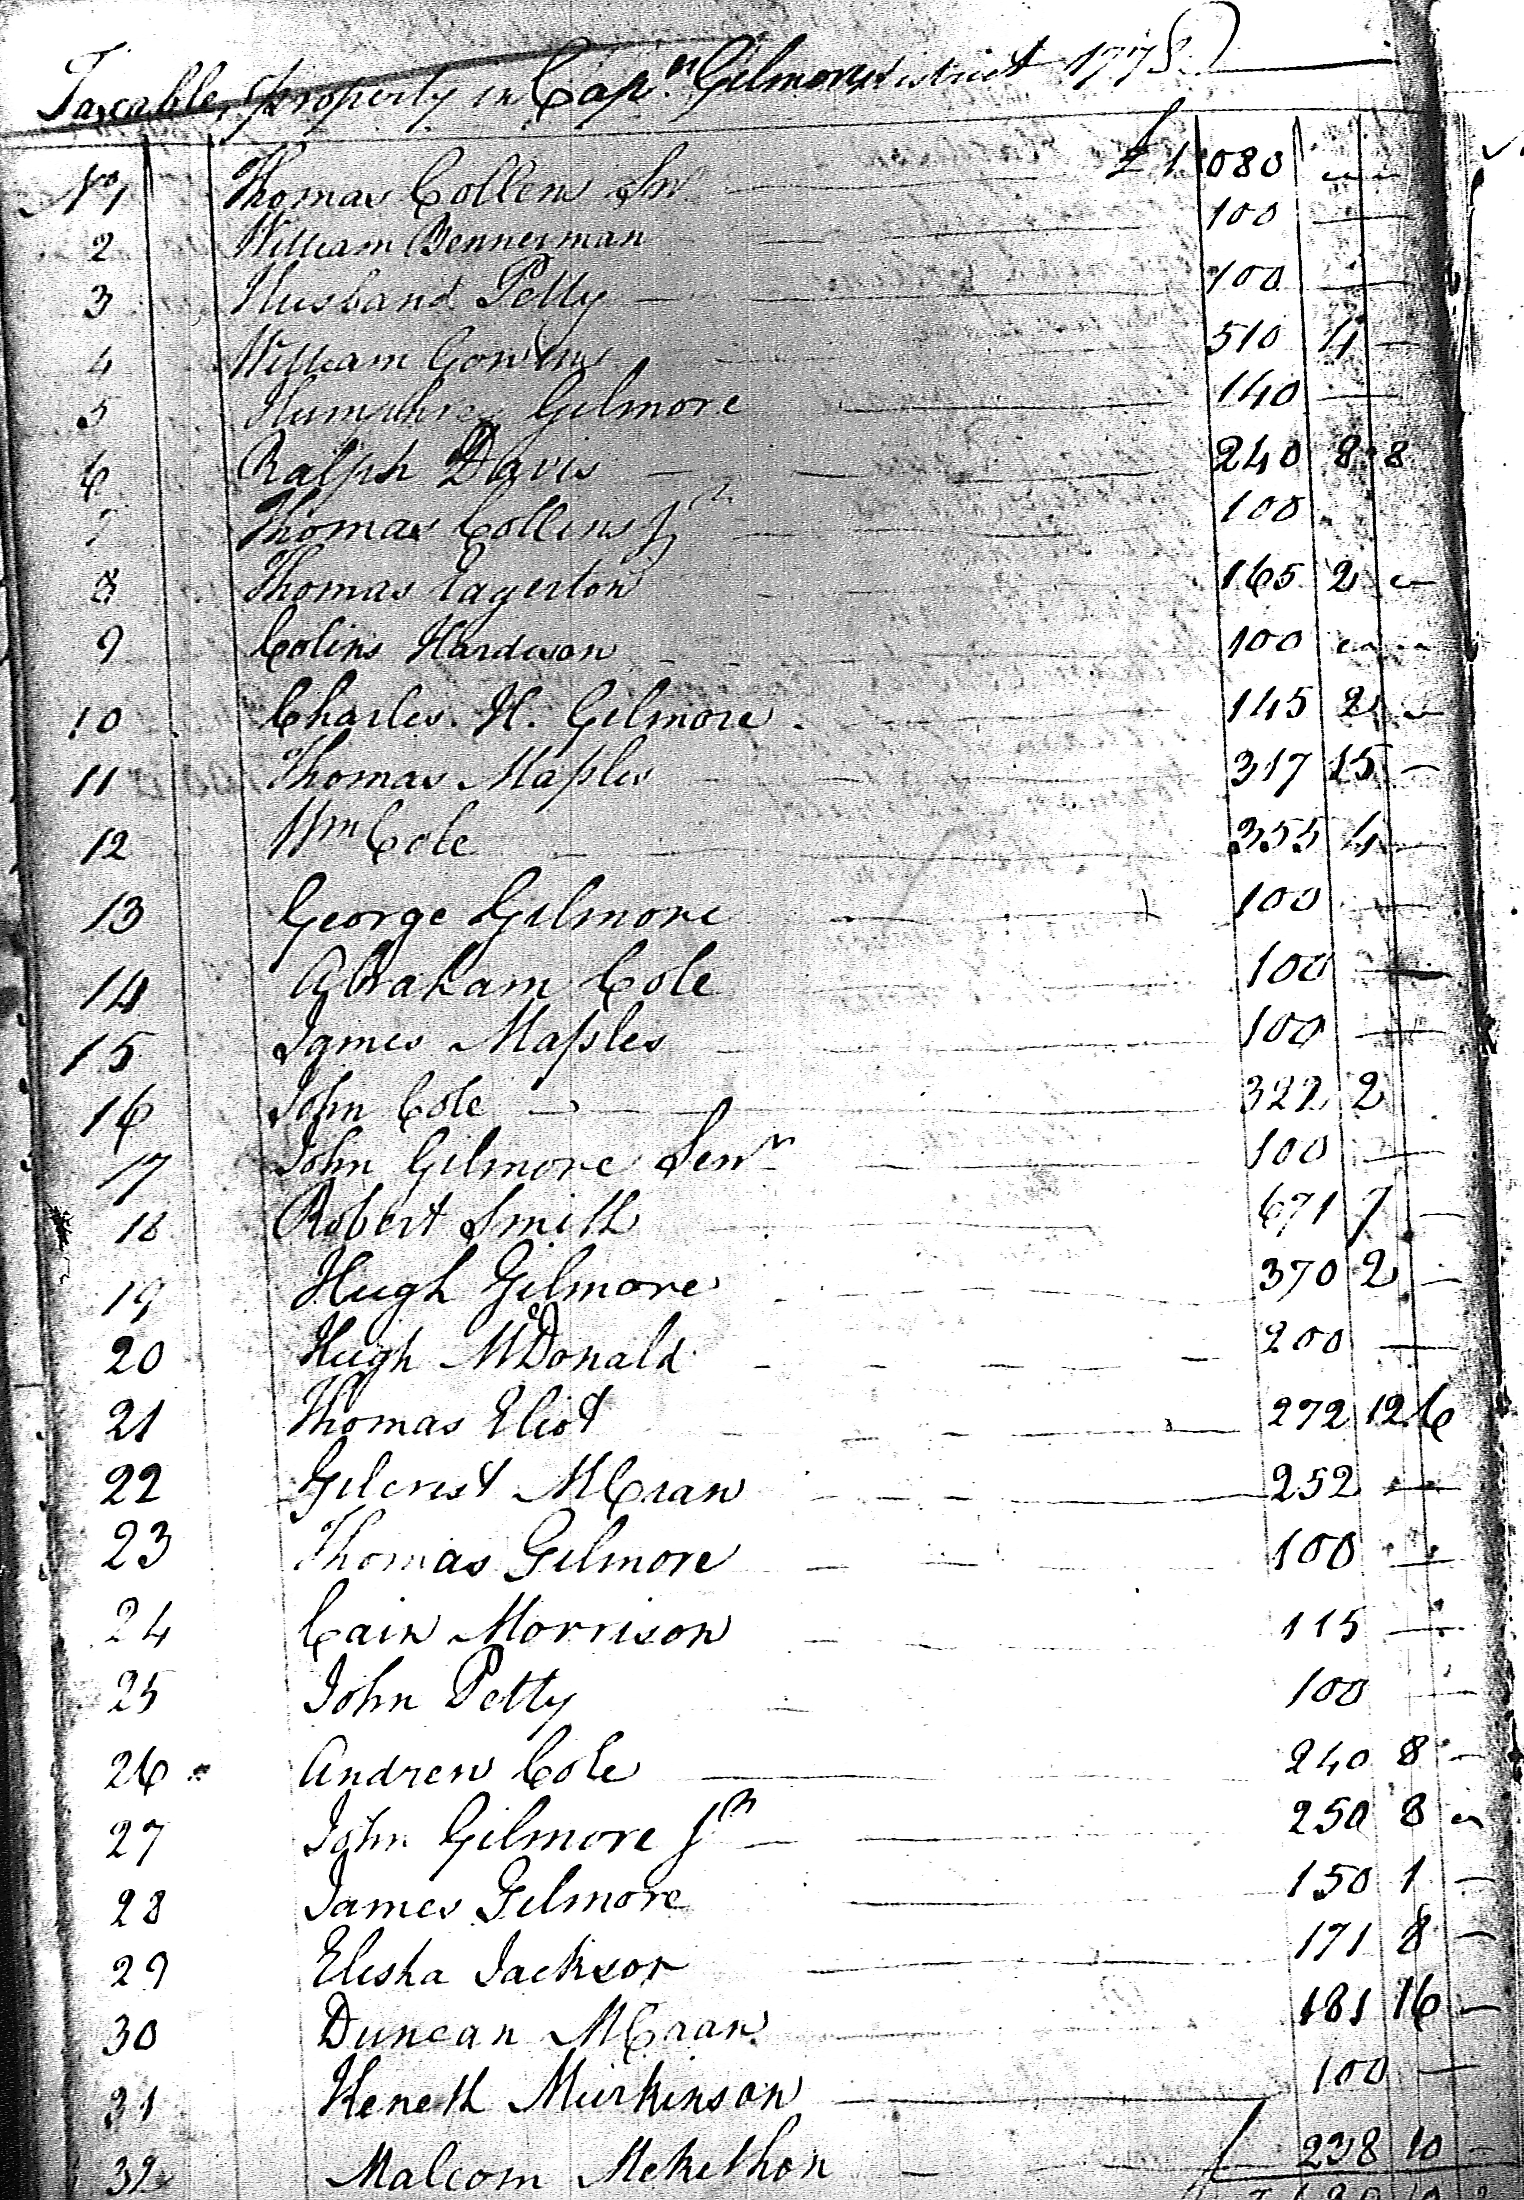 Taxable Property in Cap.n Gilmores district 1778
No 1 Thomas Collens Snr £ 1080
2 William Bennerman 100
3 Husband Petty 100
4 William 510 4
5 Humphrey Gilmore 140
6 Ralph Davis 240 8 8
7 Thomas Collins Jr 100
8 Thomas Eagerton 165 2
9 Colins Hardison 100
10 Charles. H. Gilmore 145 2
11 Thomas Maples 317 15
12 Wm Cole 355 4
13 George Gilmore 100
14 Abraham Cole 100
15 James Maples 100
16 John Cole 322 2
17 John Gilmore Senr 100
18 Robert Smith 671 7
19 Hugh Gilmore 370 2
20 Hugh McDonald 200
21 Thomas Eliot 272 12 6
22 Gilcrest McCran 252
23 Thomas Gilmore 100
24 Cain Morrison 115
25 John Petty 100
26 Andrew Cole 240 8
27 John Gilmore Jr 250 8
28 James Gilmore 150 1
29 Elisha Jackson 171 8
30 Duncan McCran 181 16
31 Keneth Murkinson 100
32 Malcom McKethon £ 238 10